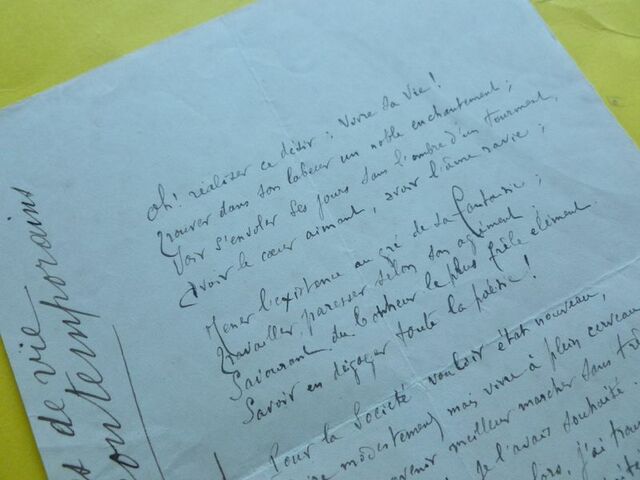 Oh! réaliser ce désir : Vivre sa Vie !
Trouver dans son labeur un noble enchantement ;
Voir s'envoler ses jours sans l'ombre d'un tourment,
Avoir le cœur aimant, avoir l'âme ravie ;
Mener l'existence au gré de sa fantaisie ;
Travailler, paresser selon son agrément ;
Savourant du bonheur le plus frêle élément.
Savoir en dégager toute la poésie !
Pour la Société vouloir état nouveau,
modestement) mais vivre à plein cerveau
avenir meilleur marcher sans
je l'avais souhaité
lors, j'ai
de vie
contemporains